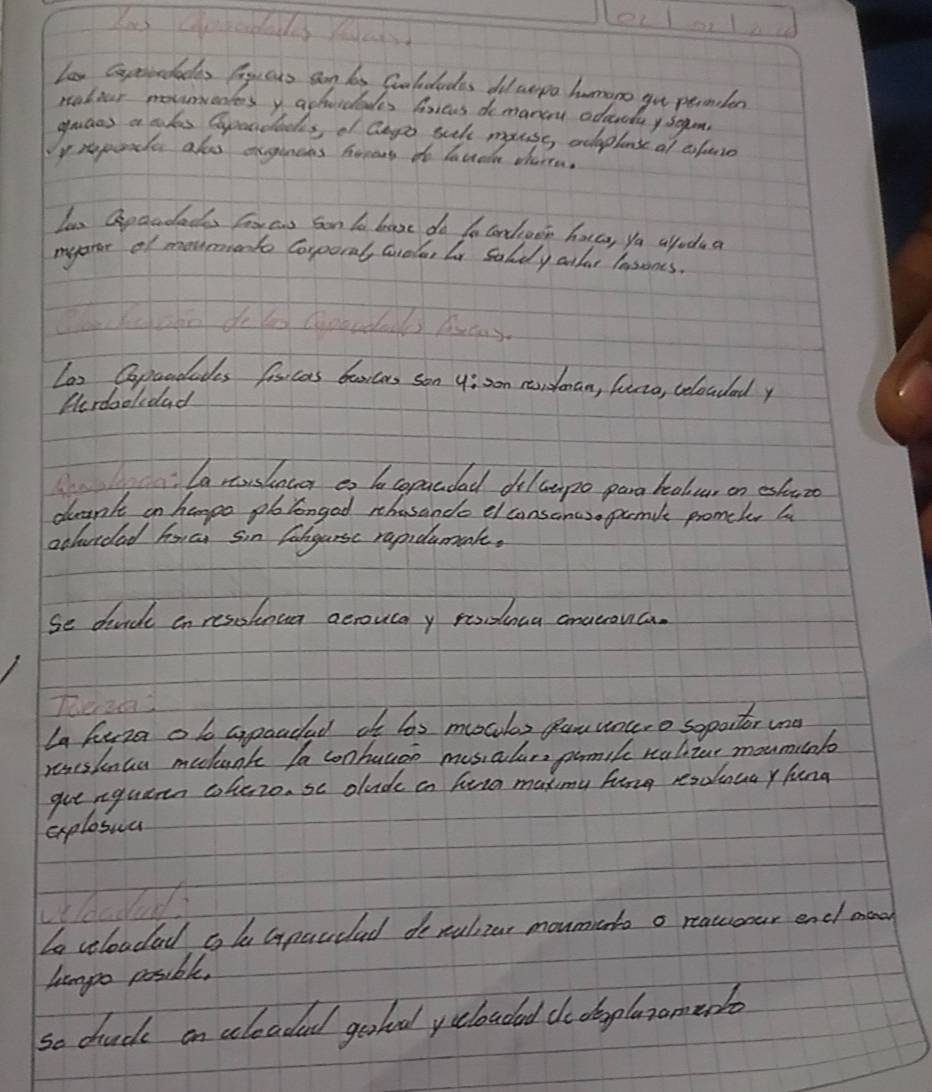 Las Capacidades físicas.
Las Capacidades físicas son las Cualidades del cuerpo humano que permiten
realizar movimientos y actividades físicas de manera adecuada y segura.
gracias a estas Capacidades, el Cuerpo puede moverse, adaptarse al esfuerzo
y responder a las exigencias físicas de la vida diaria.
Las Capacidades físicas son la base de la condición física, ya ayuda a
mejorar el movimiento Corporal, cuidar la Salud y evitar lesiones.
Clasificación de las Capacidades físicas.
Las Capacidades físicas basicas son 4: son resistencia, fuerza, velocidad y
flexibilidad
Resistencia: La resistencia es la capacidad del cuerpo para realizar un esfuerzo
durante un tiempo prolongad rehusando el cansancio. permite prometer la
actividad física sin fatigarse rapidamente.
se divide en resistencia aerovica y resistencia anaerovica.
Fuerza:
La fuerza es la capacidad de los musculos para vencer o soportar una
resistencia mediante la contración muscular. permite realizar movimiento
que requieren esfuerzo. se divide en fuerza maxima fuerza resistencia y fuerza
explosiva
velocidad:
La velocidad es la capacidad de realizar movimiento o reaccionar en el menor
tiempo posible.
se divide en velocidad gestual y velocidad de desplazamiento